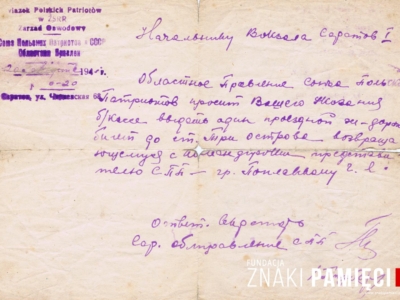 Związek Polskich Patriotów
w ZSRR
Zarząd Obwodowy
Союз Польских Патриотов в СССР
Областное Правление
Саратов, ул.
Начальнику Вокзала Саратов I
Областное Правление союза Польск
Патриотов просит Вашего
б/кассе выдать один проездной ж-дорож
билет до ст. Три острова возвраща
ющемуся с командировки представи
телю СПП – гр.
Ответ. Секретарь
Сар. облправление СПП
FUNDACJA
ZNAKI PAMIĘCI